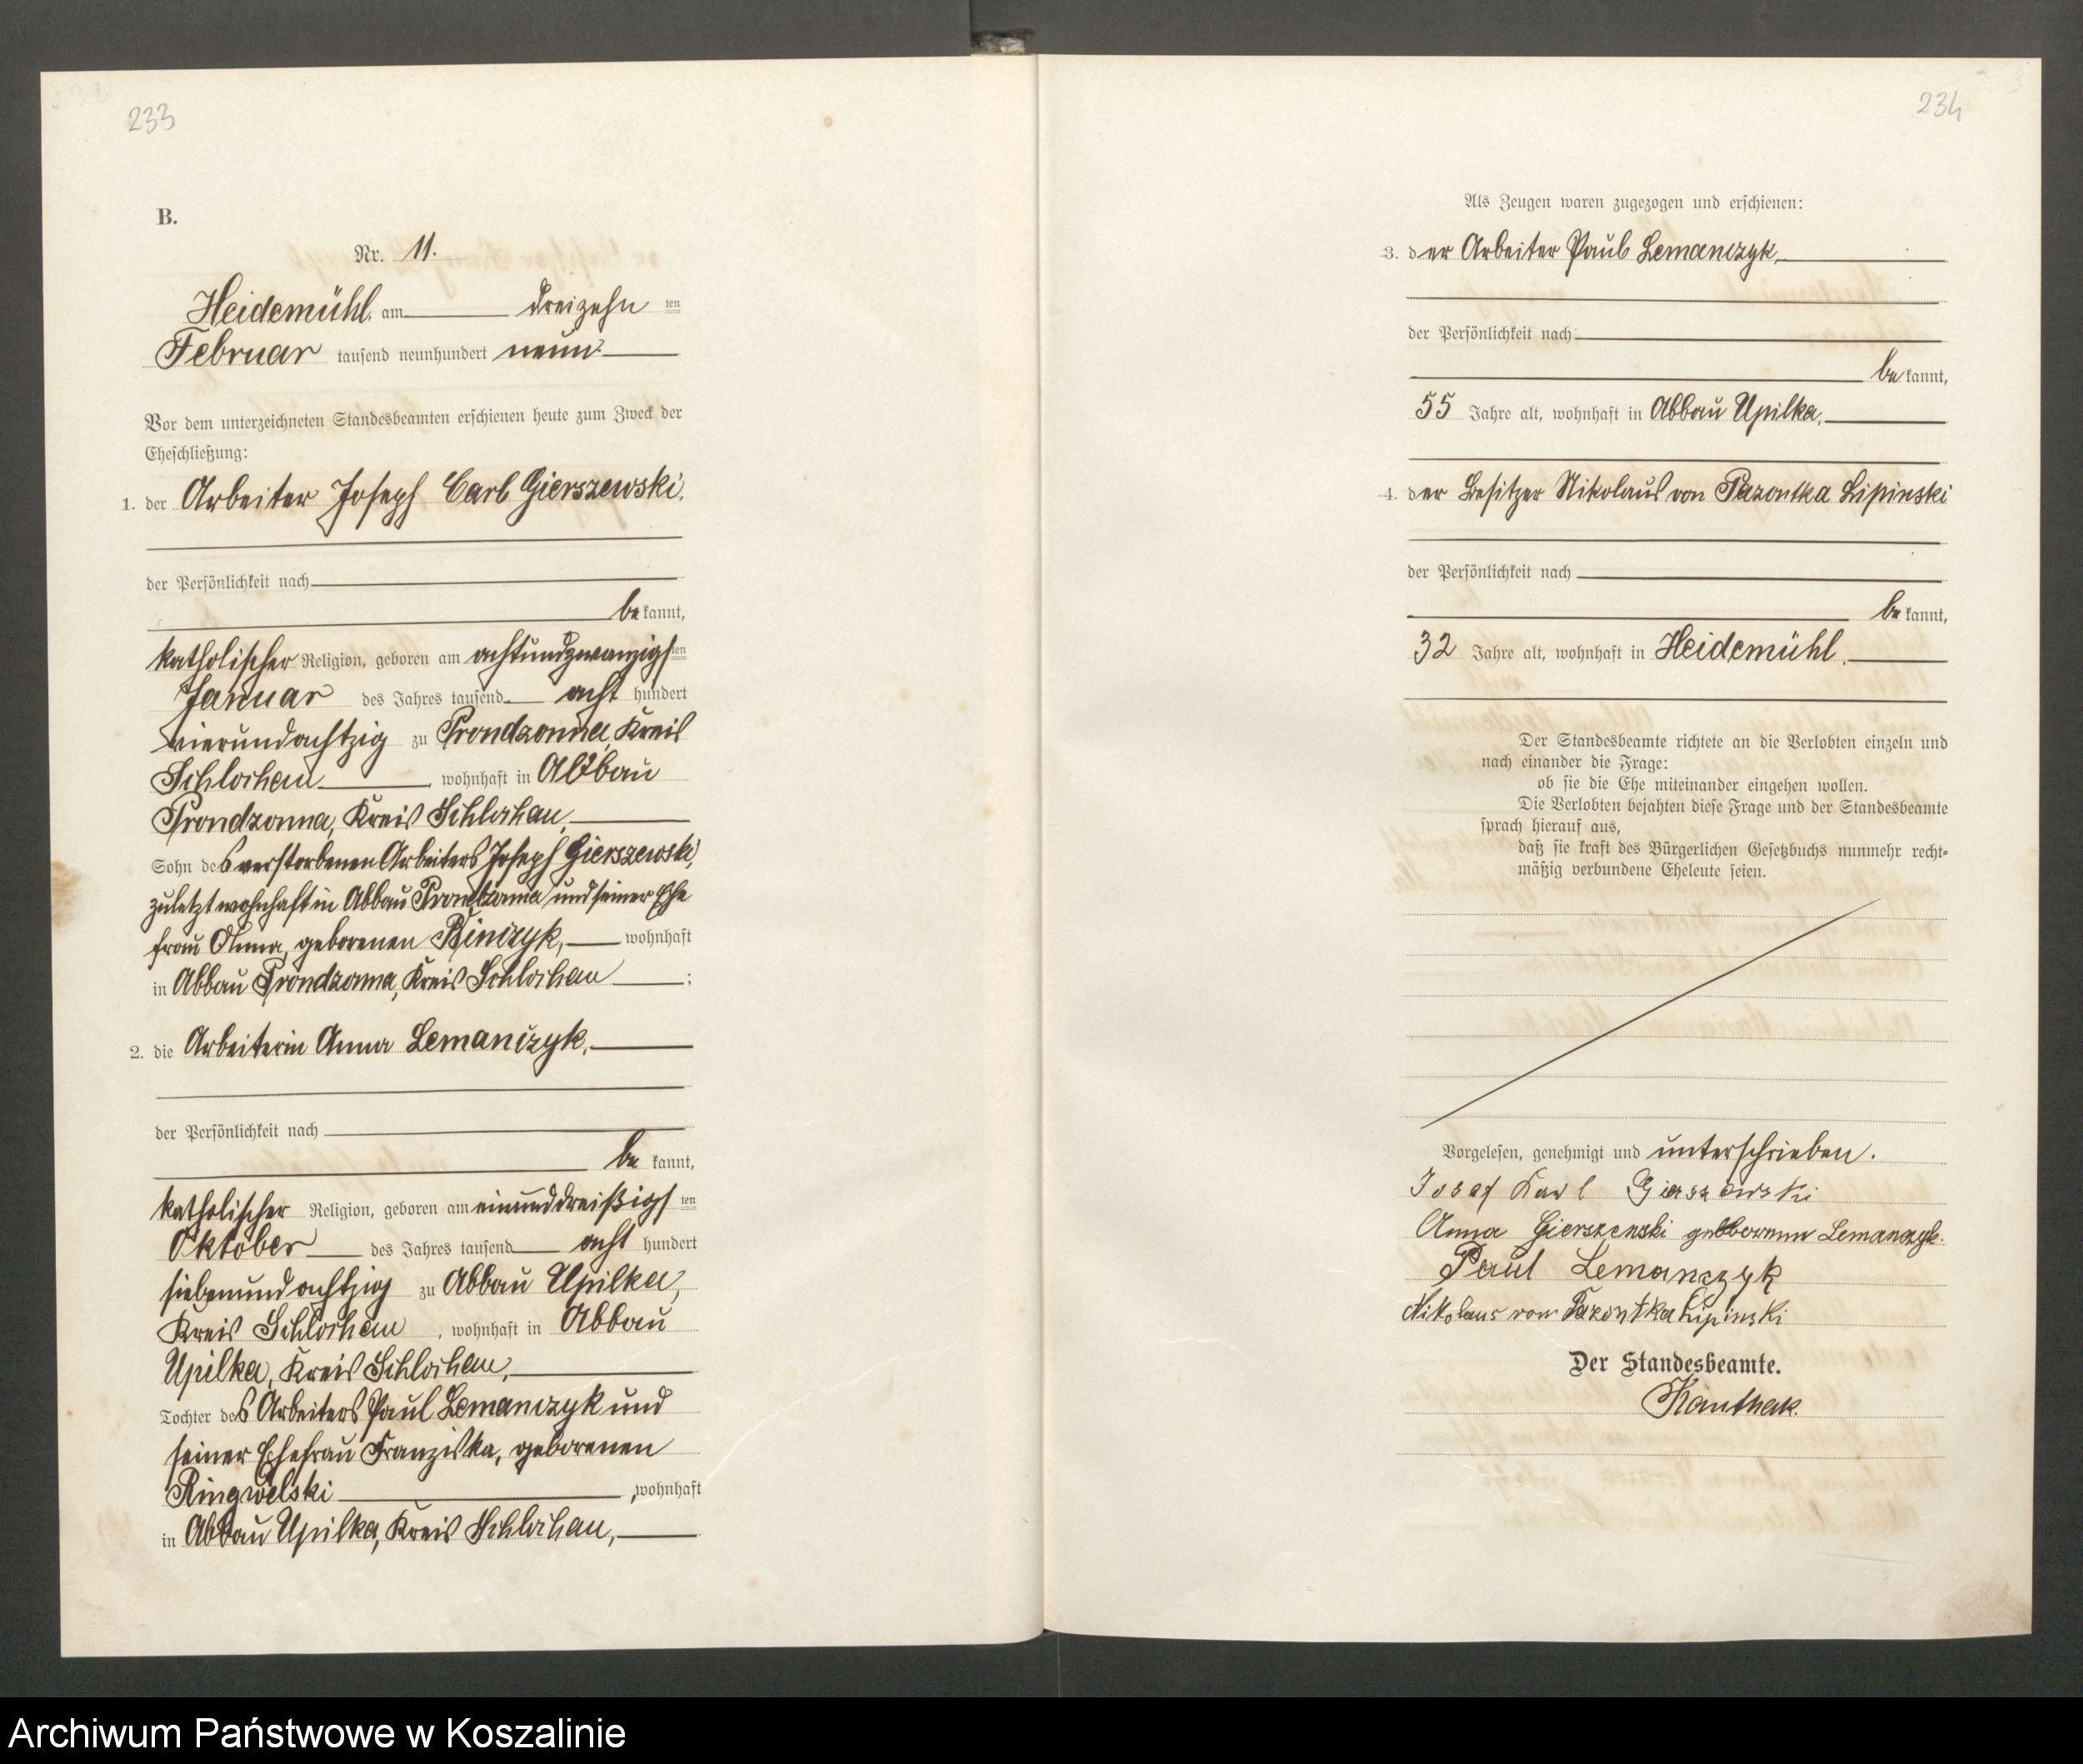 233
B.
Nr. 11.
Heidemühl, am dreizehn ten
Februar tausend neunhundert neun.
Vor dem unterzeichneten Standesbeamten erschienen heute zum Zweck der
Eheschließung:
1. der Arbeiter Joseph Carl Gierszewski,
der Persönlichkeit nach
be kannt,
katholischer Religion, geboren am achtundzwanzigsten
Januar des Jahres tausend acht hundert
vierundachtzig zu Prondzonna, Kreis
Schlochau, wohnhaft in Abbau
Prondzonna, Kreis Schlochau,
Sohn des verstorbenen Arbeiters Joseph Gierszewski,
zuletzt wohnhaft in Abbau Prondzonna und seiner Ehe
frau Anna, geborenen Binczyk, wohnhaft
in Abbau Prondzonna, Kreis Schlochau ;
2. die Arbeiterin Anna Lemanczyk,
der Persönlichkeit nach
be kannt,
katholischer Religion, geboren am einunddreißigsten
Oktober des Jahres tausend acht hundert
siebenundachtzig zu Abbau Upilka,
Kreis Schlochau, wohnhaft in Abbau
Upilka, Kreis Schlochau,
Tochter des Arbeiters Paul Lemanczyk und
seiner Ehefrau Franziska, geborenen
Ringwelski, wohnhaft
in Abbau Upilka, Kreis Schlochau,
234
Als Zeugen waren zugezogen und erschienen:
3. der Arbeiter Paul Lemanczyk,
der Persönlichkeit nach
be kannt,
55 Jahre alt, wohnhaft in Abbau Upilka,
4. der Besitzer Nikolaus von Pazontka Lipinski
der Persönlichkeit nach
be kannt,
32 Jahre alt, wohnhaft in Heidemühl.
Der Standesbeamte richtete an die Verlobten einzeln und
nach einander die Frage:
ob sie die Ehe miteinander eingehen wollen.
Die Verlobten bejahten diese Frage und der Standesbeamte
sprach hierauf aus,
daß sie kraft des Bürgerlichen Gesetzbuchs nunmehr recht-
mäßig verbundene Eheleute seien.
Vorgelesen, genehmigt und unterschrieben.
Josef Karl Gierszewski
Anna Gierszenski geborenen Lemanczyk.
Paul Lemanczyk
Nikolaus von Pazontka Lipinski
Der Standesbeamte.
Kauthak.
Archiwum Państwowe w Koszalinie